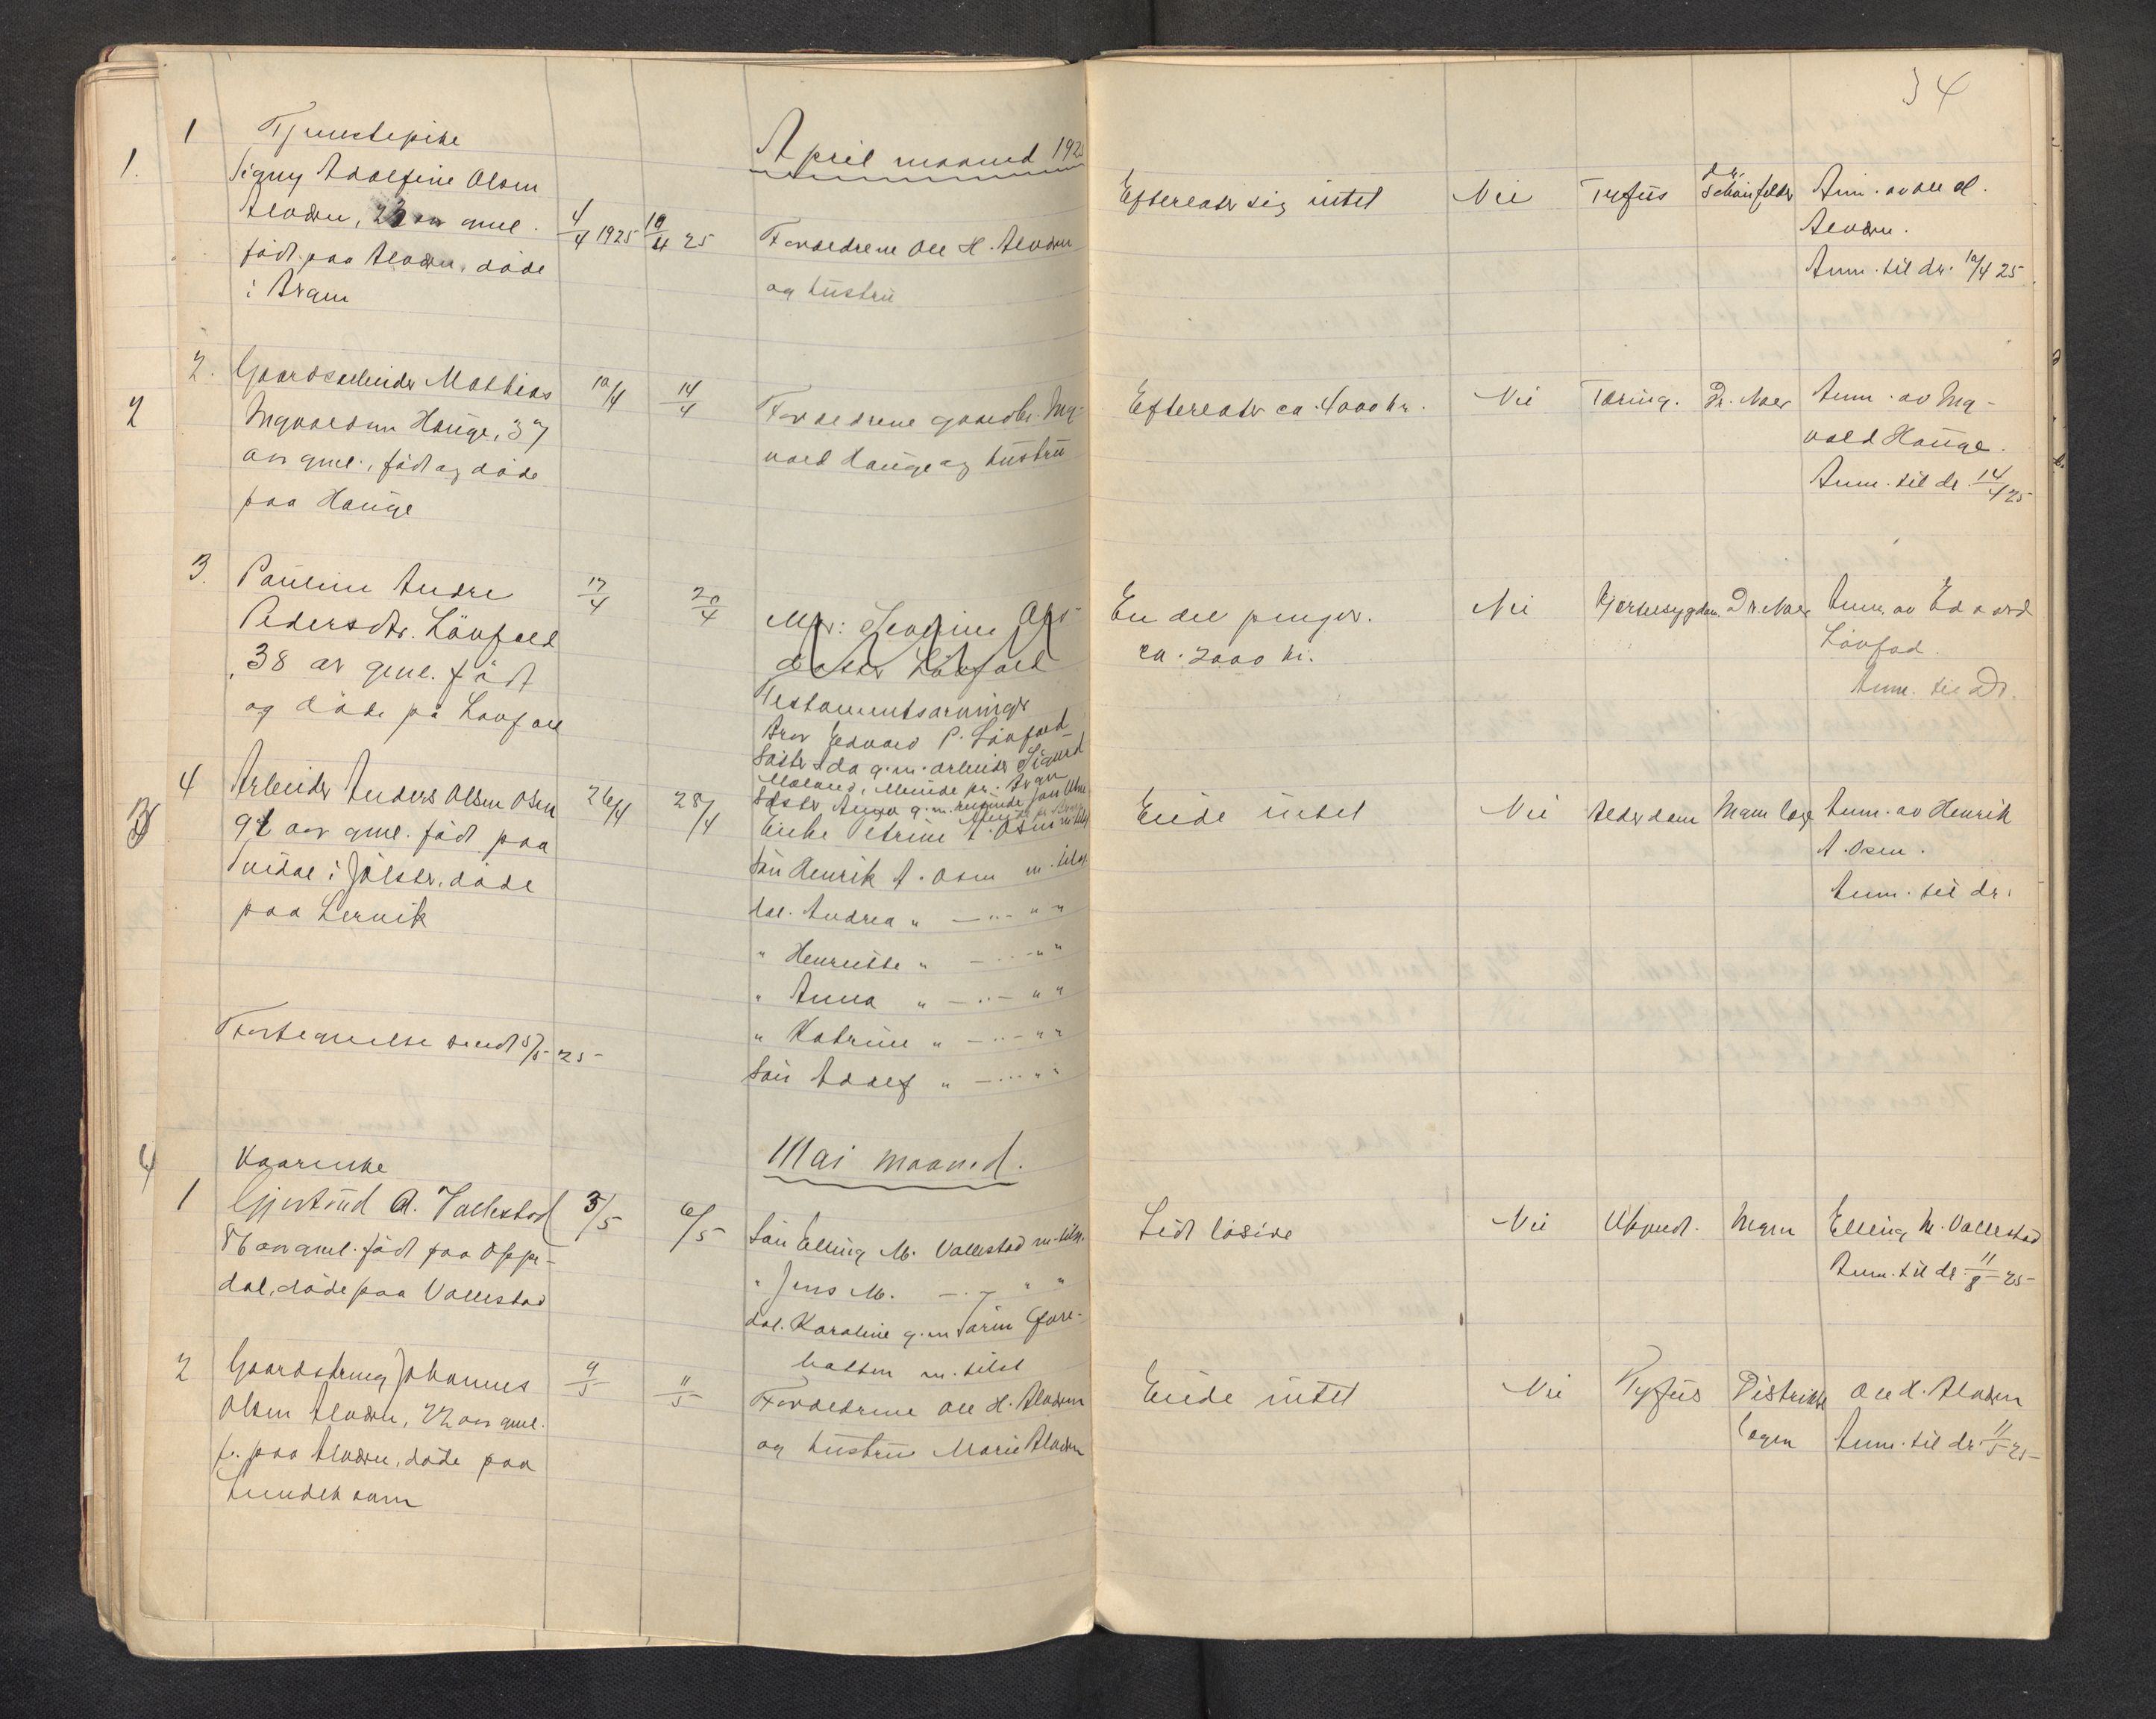 34
1.
1
Tjenestepike
Signy Adolfine Olsen
23 aar gml.
født paa døde
i
4/4 1925
10/4 25
April maaned 1925
Forældrene Ole H.
og hustru
Efterlater sig intet
Nei
Tyfus
dr.
Anm. av Ole H.
Anm. til dr. 10/4 25
2
2.
Gaardsarbeider Mathias
Ingvaldsen Hauge, 37
aar gml., født og døde
paa Hauge
10/4
14/4
Forældrene gaardbr. Ing-
vald Hauge og hustru
Efterlater ca. 4000 kr.
Nei
Tæring.
Dr. Naer
Anm. av Ing-
vald Hauge.
Anm. til dr. 14/4 25
3.
Pauline Andre
Pedersdtr. Løvfald
38 år gml. født
og døde på Løvfall
17/4
20/4
Mor: Severine
datter Løvfald
Testamentsarvinger
Bror Edvard P. Løvfald
Søster Ida g.m. arbeider Sigurd
Søster Anna g.m.
En del penger.
ca. 2000 kr.
Nei
Hjertesygdom.
Dr. Naer
Anm. av Edvard
Løvfad.
Anm. til Dr.
4
Arbeider Anders Olsen Osen
91 aar gml. født paa
i Jølster, døde
paa Lervik
26/4
28/4
Enke Petrine A. Osen
Søn Henrik A. Osen m. tilst.
dat. Andrea " — " — " "
" Henriette " — " — " "
" Anna " — " — " "
" Katrine " — " — " "
Søn Adolf " — " — " "
Eiede intet
Nei
Alderdom
Ingen læge
Anm. av Henrik
A. Osen.
Anm. til dr.
Fortegnelse sendt 5/5 25
4
Mai maaned.
1
Kaarenke
Gjertrud A. Vallestad
86 aar gml. født paa Oppe-
dal, døde paa Vallestad
3/5
6/5
Søn Elling M. Vallestad m. tilst.
" Jens M. — " — " "
dat. Karoline g.m.
m. tilst
Lidt løsøre
Nei
Ukjent.
Ingen
Elling M. Vallestad
Anm. til dr. 11/8 25
2
Gaardsdreng Johannes
Olsen 22 aar gml.
f. paa døde paa
9/5
11/5
Forældrene Ole H.
og hustru Marie
Eiede intet
Nei
Tyfus
Distrikts
lægen
Ole H.
Anm. til dr. 11/5 25